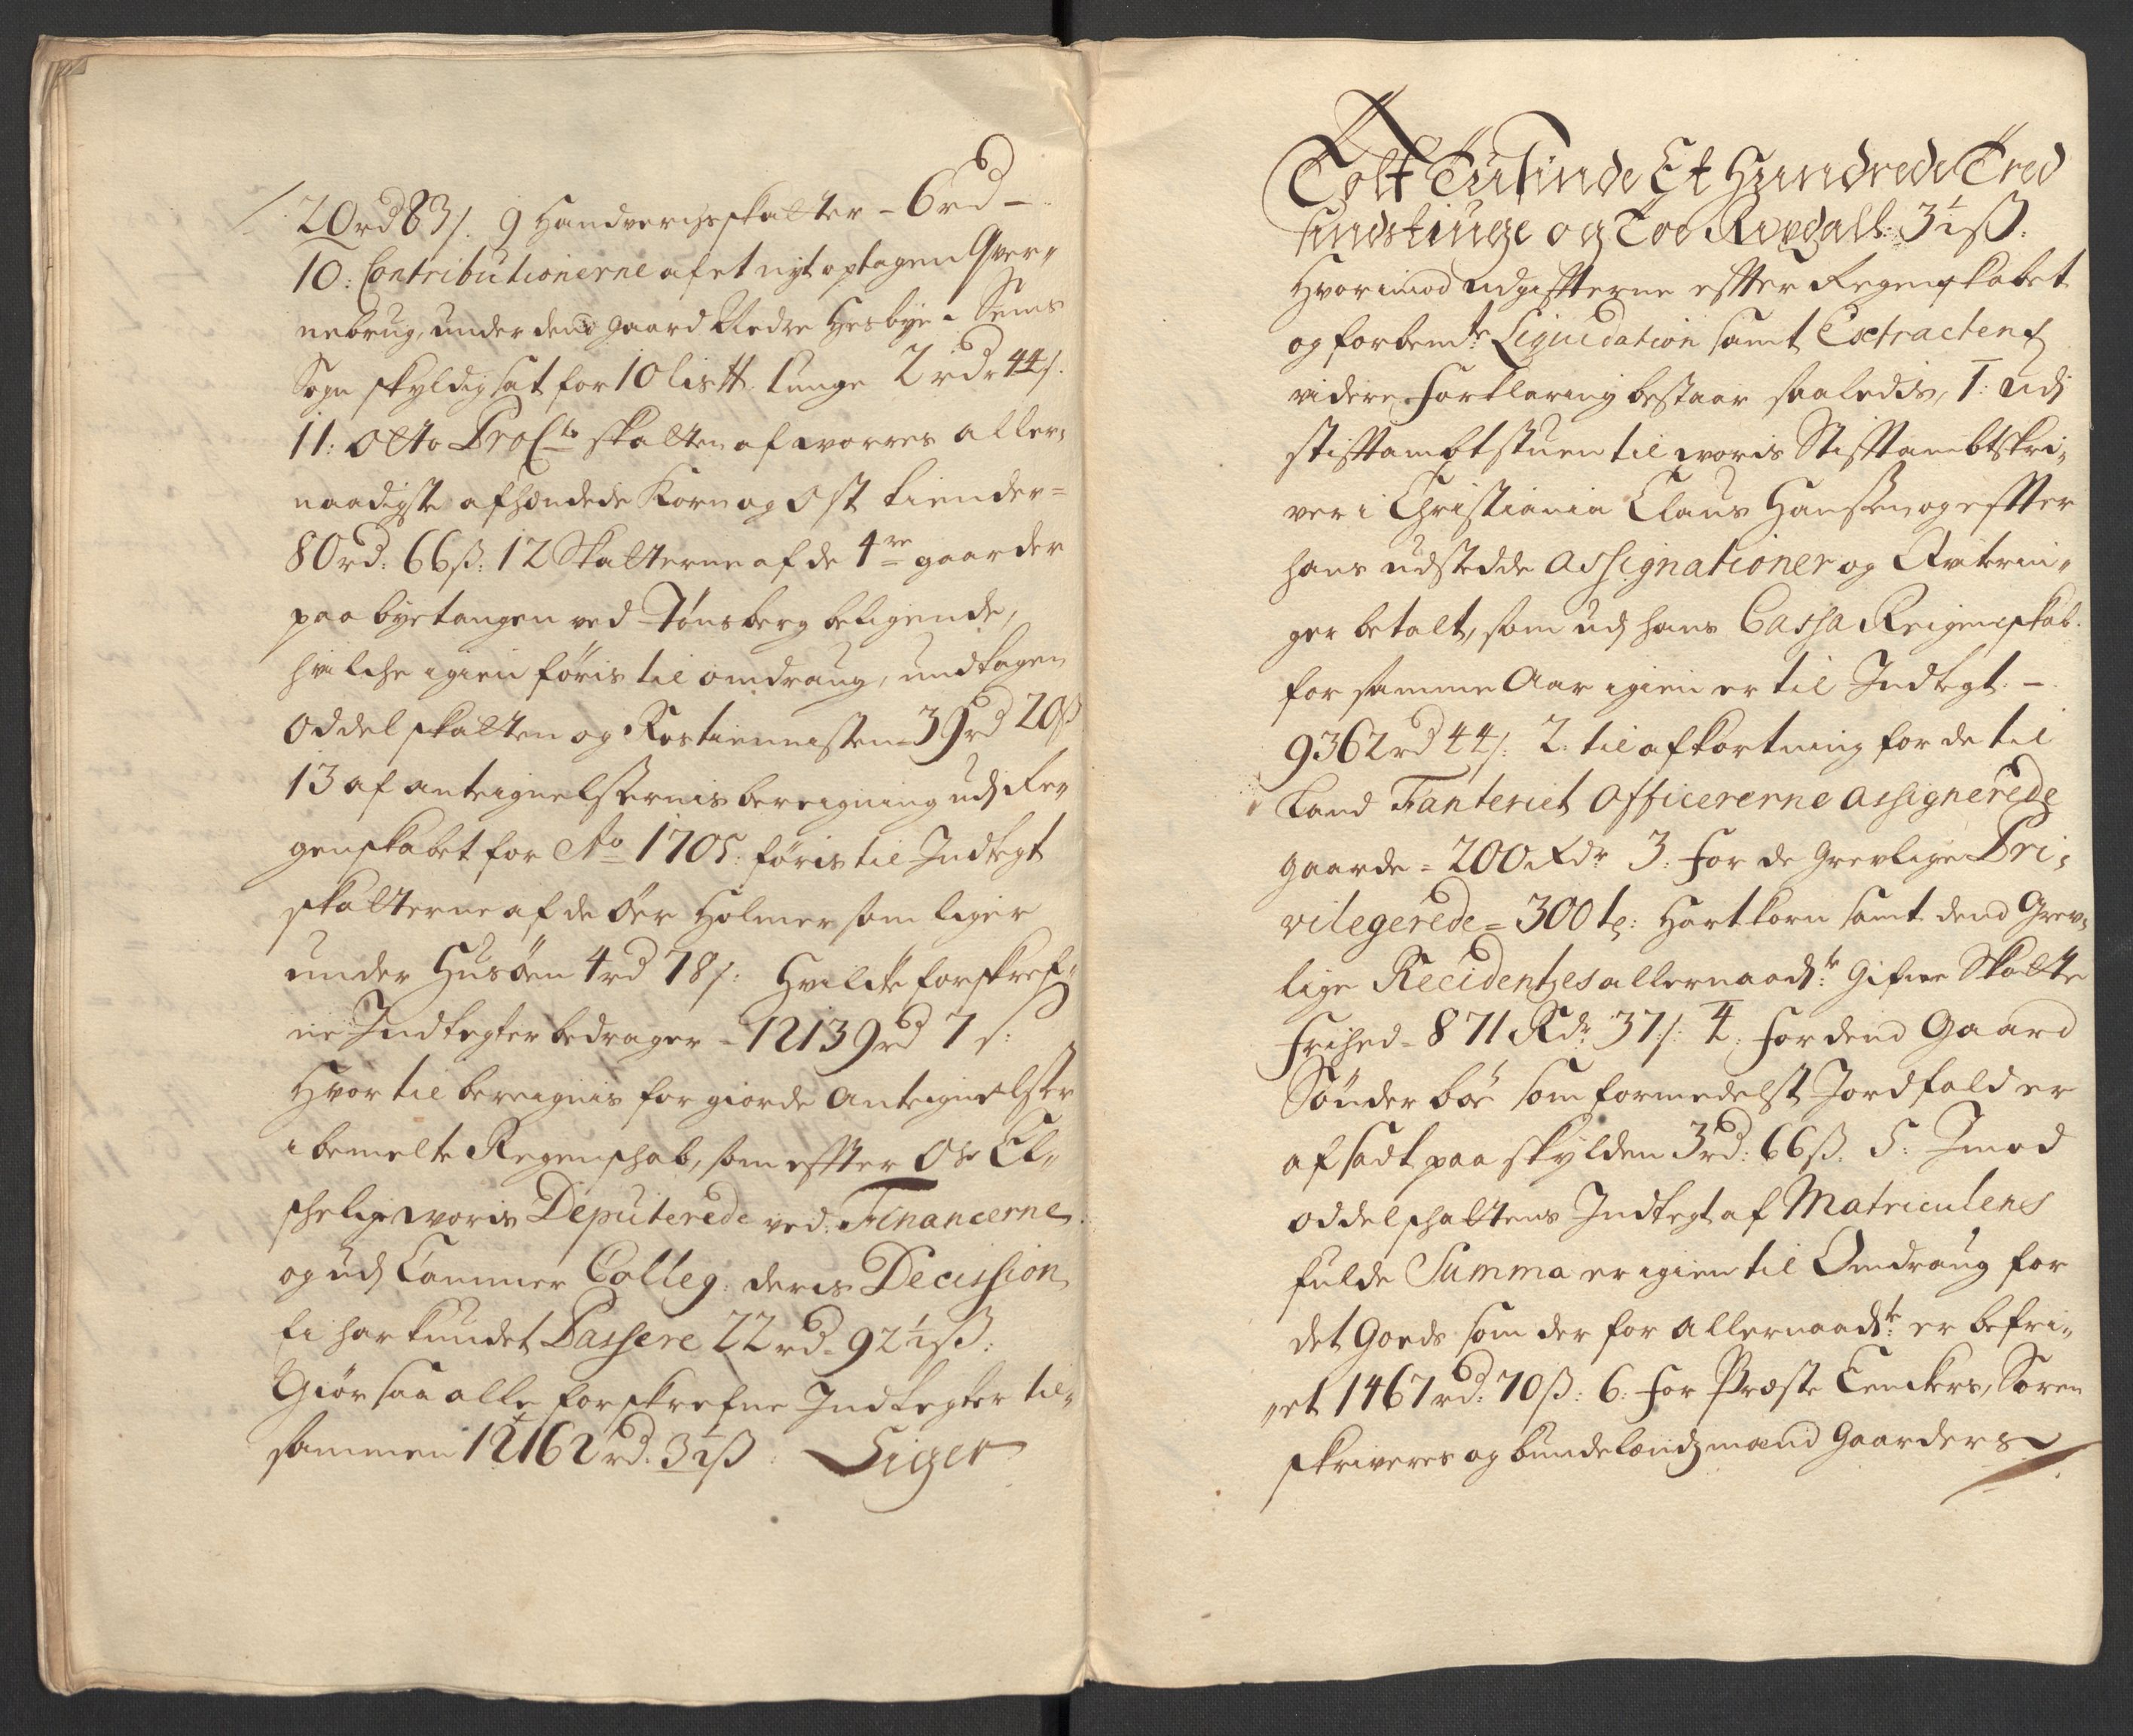 20rd 83s. 9 Handverchsskatter - 6rd -
10: Contributionerne af et nyt optagen Qver„
nebrug, under dend gaard Nedre Hesbye i Sems
Sogn skyldig sat for 10 lis tt. tunge 2 rdr 44s.
11: Otto ProCto skatten af vorres aller„
naadigste afhændede Korn og Ost tiender =
80rd: 66ß: 12 Skatterne af de 4re gaarder
paa byetangen ved Tønsberg beligende,
hvilche igien føris til omdraug, undtagen
Oddelskatten og Rostiennisten = 39rd 20ß
13 af anteignelssernis bereigning udj Re„
genskabet for Ao 1705: føris til Indtegt
skatterne af de öer Holmer som liger
under Husøen 4rd 78s: Hvilcke forskref„
ne Indtegter bedrager - 12139rd 7s:
Hvortil bereignis for giorde Anteignelsser
i bemelte Regenschab, som effter Os El„
schelige woris Deputerede ved Financerne
og udj Cammer Colleg: deris Decission
ei har kundet Passere 22rd 92½ß:
Giør saa alle forskrefne Indtegter til„
sammen 12162rd. 3½ß: Siger
Tolf Tusinde Et Hundrede Tred
sindstiuge og Toe Rixdall: 3½ß.
Hvorimod udgiffterne effter Regenskabet
og forbemte Liquidation samt Extractens
videre forklaring bestaar saaledis, 1: udj
stifftambtstuen til woris Stifftambtskri„
ver i Christiania Claus Hanssen og effter
hans udstedde Assignationer og Qviterin„
ger betalt, som udj hans Cassa Reigenskab
for samme Aar igien er til Indtegt. -
9362rd 44s: 2: til afkortning for de til
Land Fanteriet Officererne assignerede
gaarde = 200 Rdr 3: for de Grevlige Pri„
vilegerede = 300 tr: Hartkorn samt dend Grev„
lige Recidentzes allernaadste Gifne Skatte
frihed = 871 Rdr 37s: 4: for dend Gaard
Sønder bøe som formedelst Jordfald er
afsadt paa skylden 3rd: 66ß. 5: Imod
oddelschattens Indtegt af Matriculens
fulde Summa er igien til Omdraug for
det Goeds som der for allernaadste er befri„
„et 1467rd: 70ß: 6: for Præste Enckers, Soren
skriveres og bundelændsmænd Gaarders